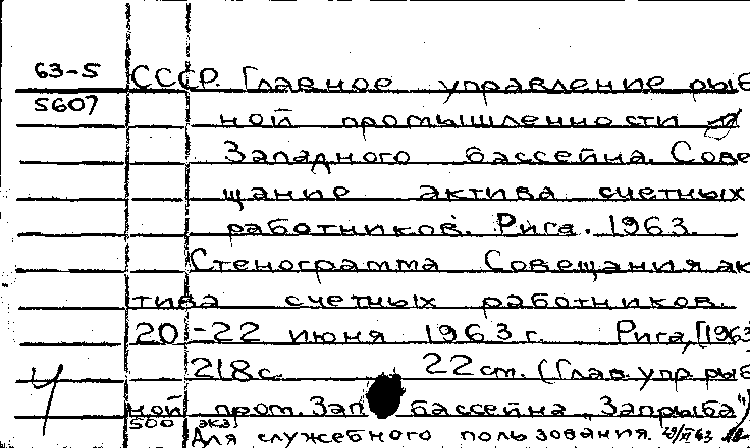 63-5 СССР. Главное управление рыб
5607 ной промышленности
Западного бассейна. Сове
щание актива счетных
работников. Рига. 1963.
Стенограмма Совещания ак
тива счетных работников.
20-22 июня 1963 г. Рига, [1963
218 с. 22 см. (Глав. упр. рыб
ной пром. Зап. бассейна „Запрыба")
500 экз.
Для служебного пользования.